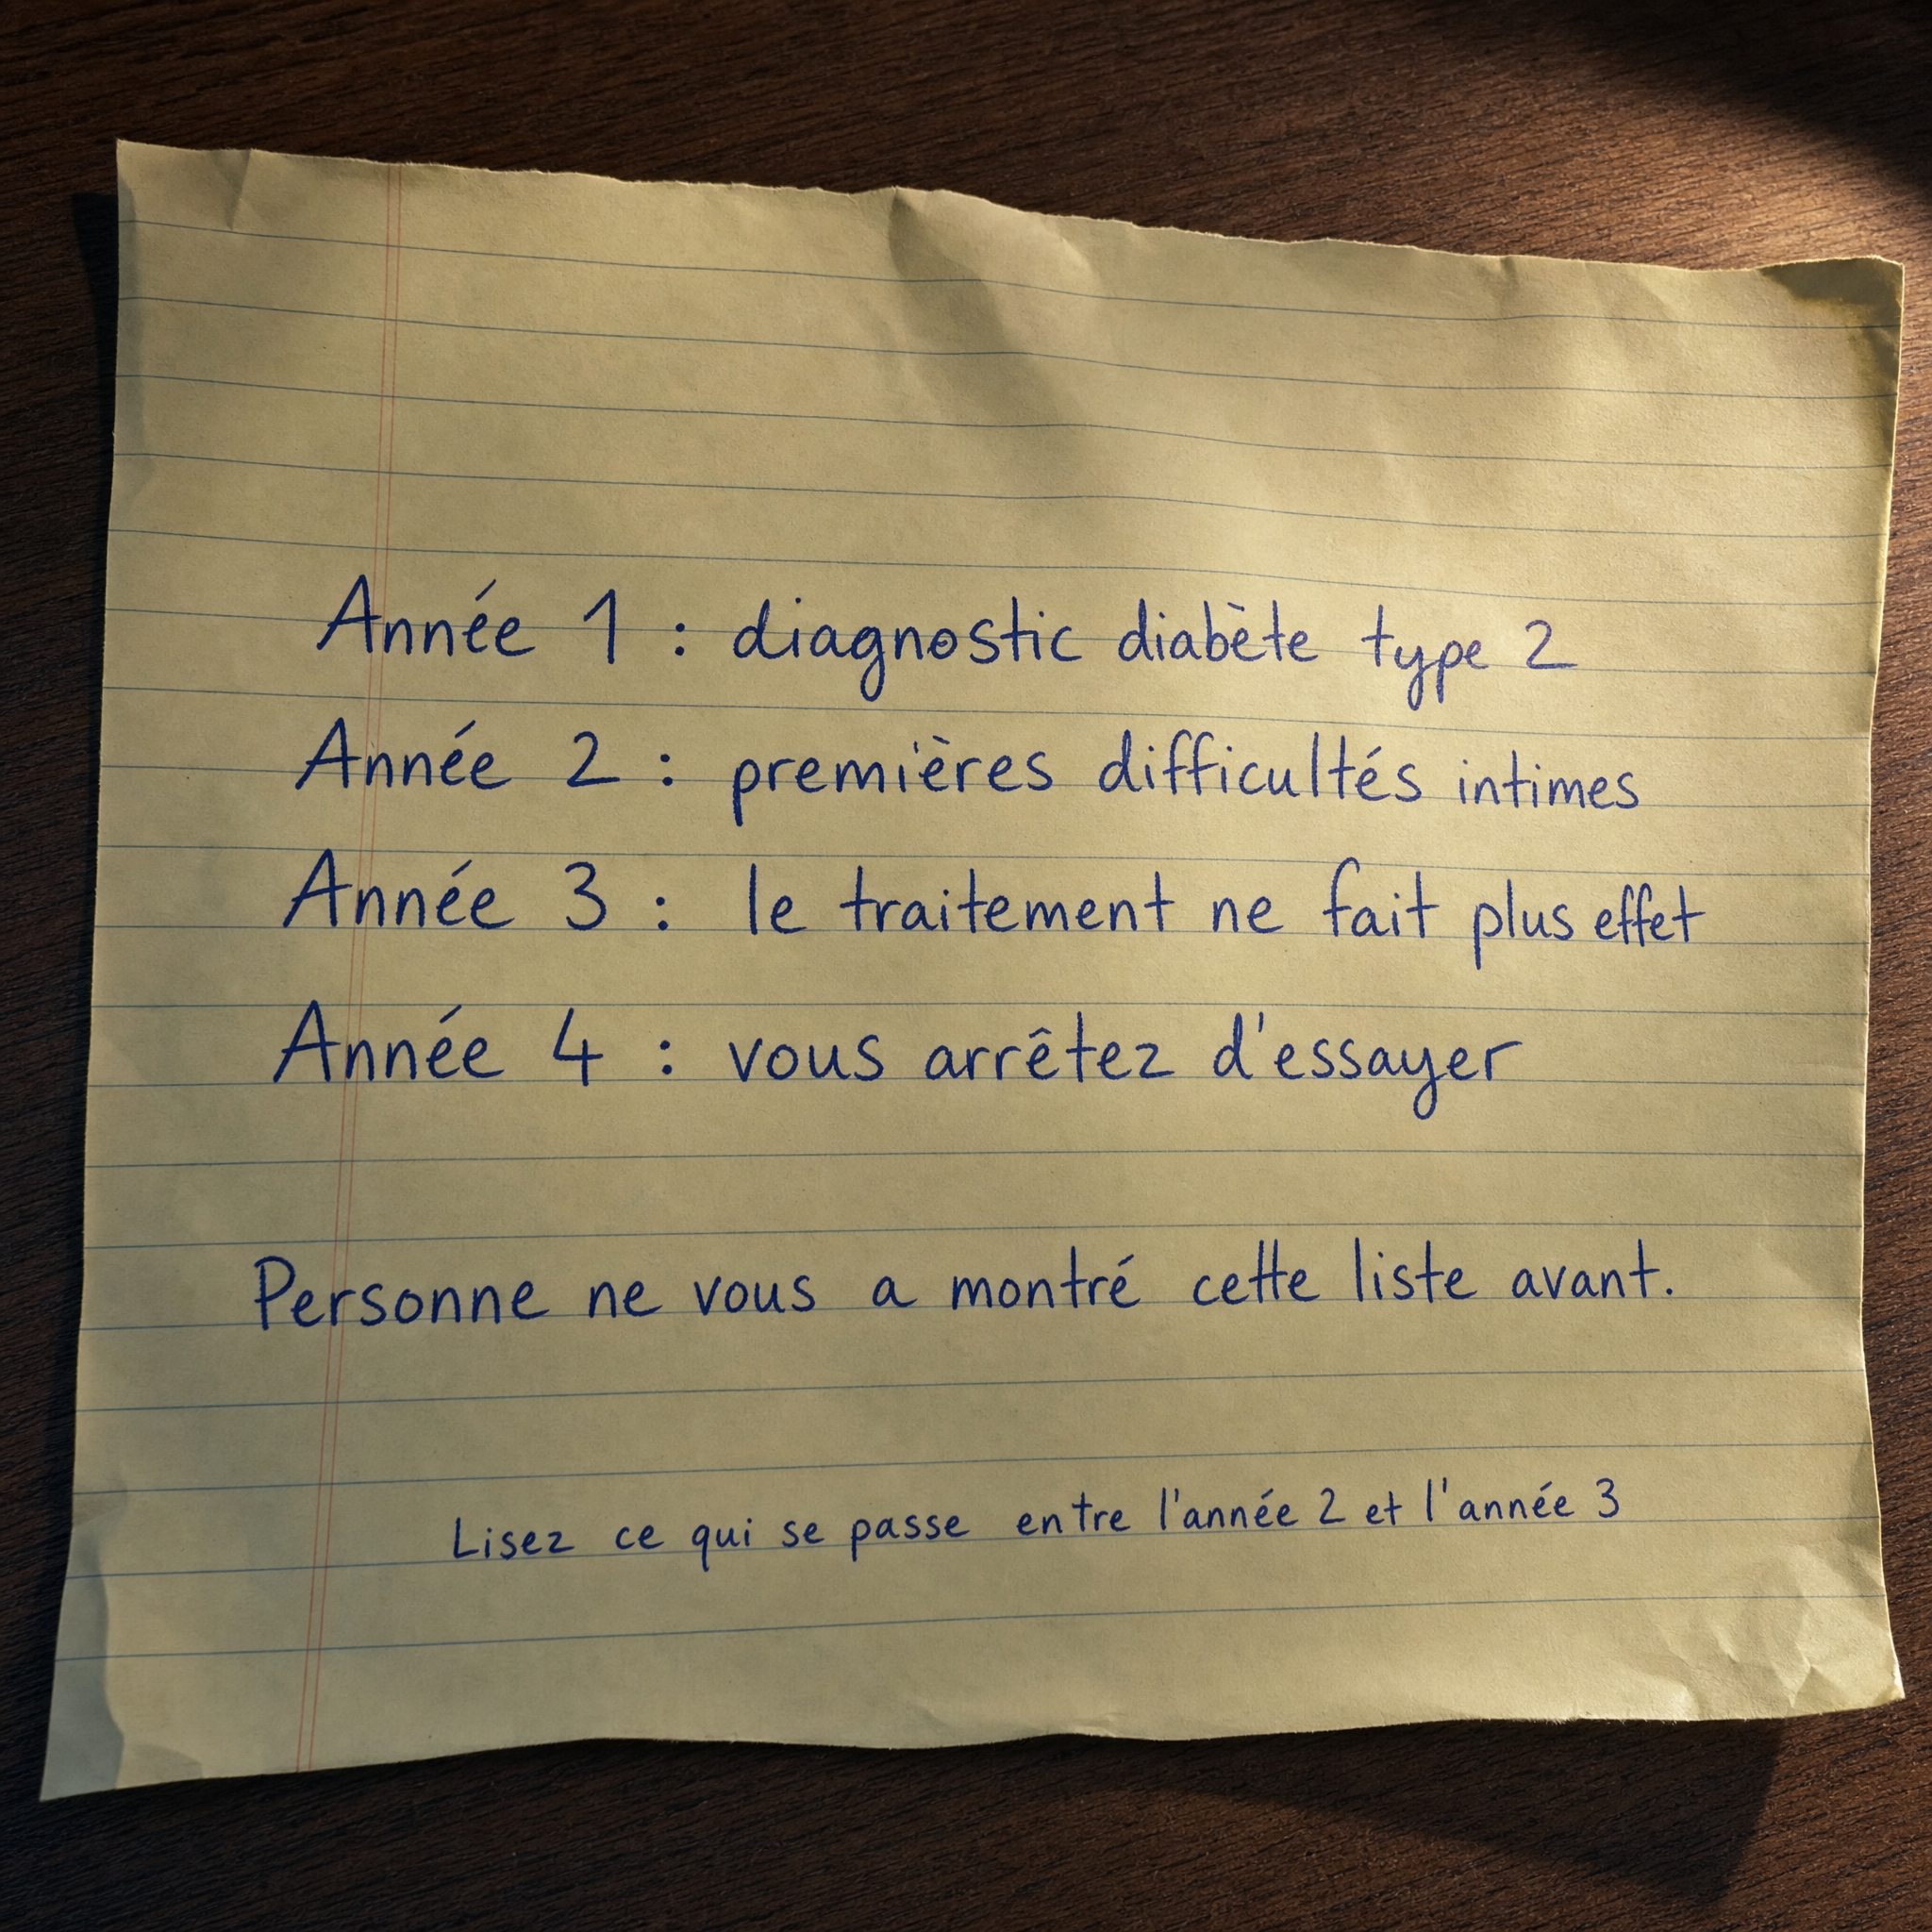 Année 1 : diagnostic diabète type 2
Année 2 : premières difficultés intimes
Année 3 : le traitement ne fait plus effet
Année 4 : vous arrêtez d'essayer
Personne ne vous a montré cette liste avant.
Lisez ce qui se passe entre l'année 2 et l'année 3